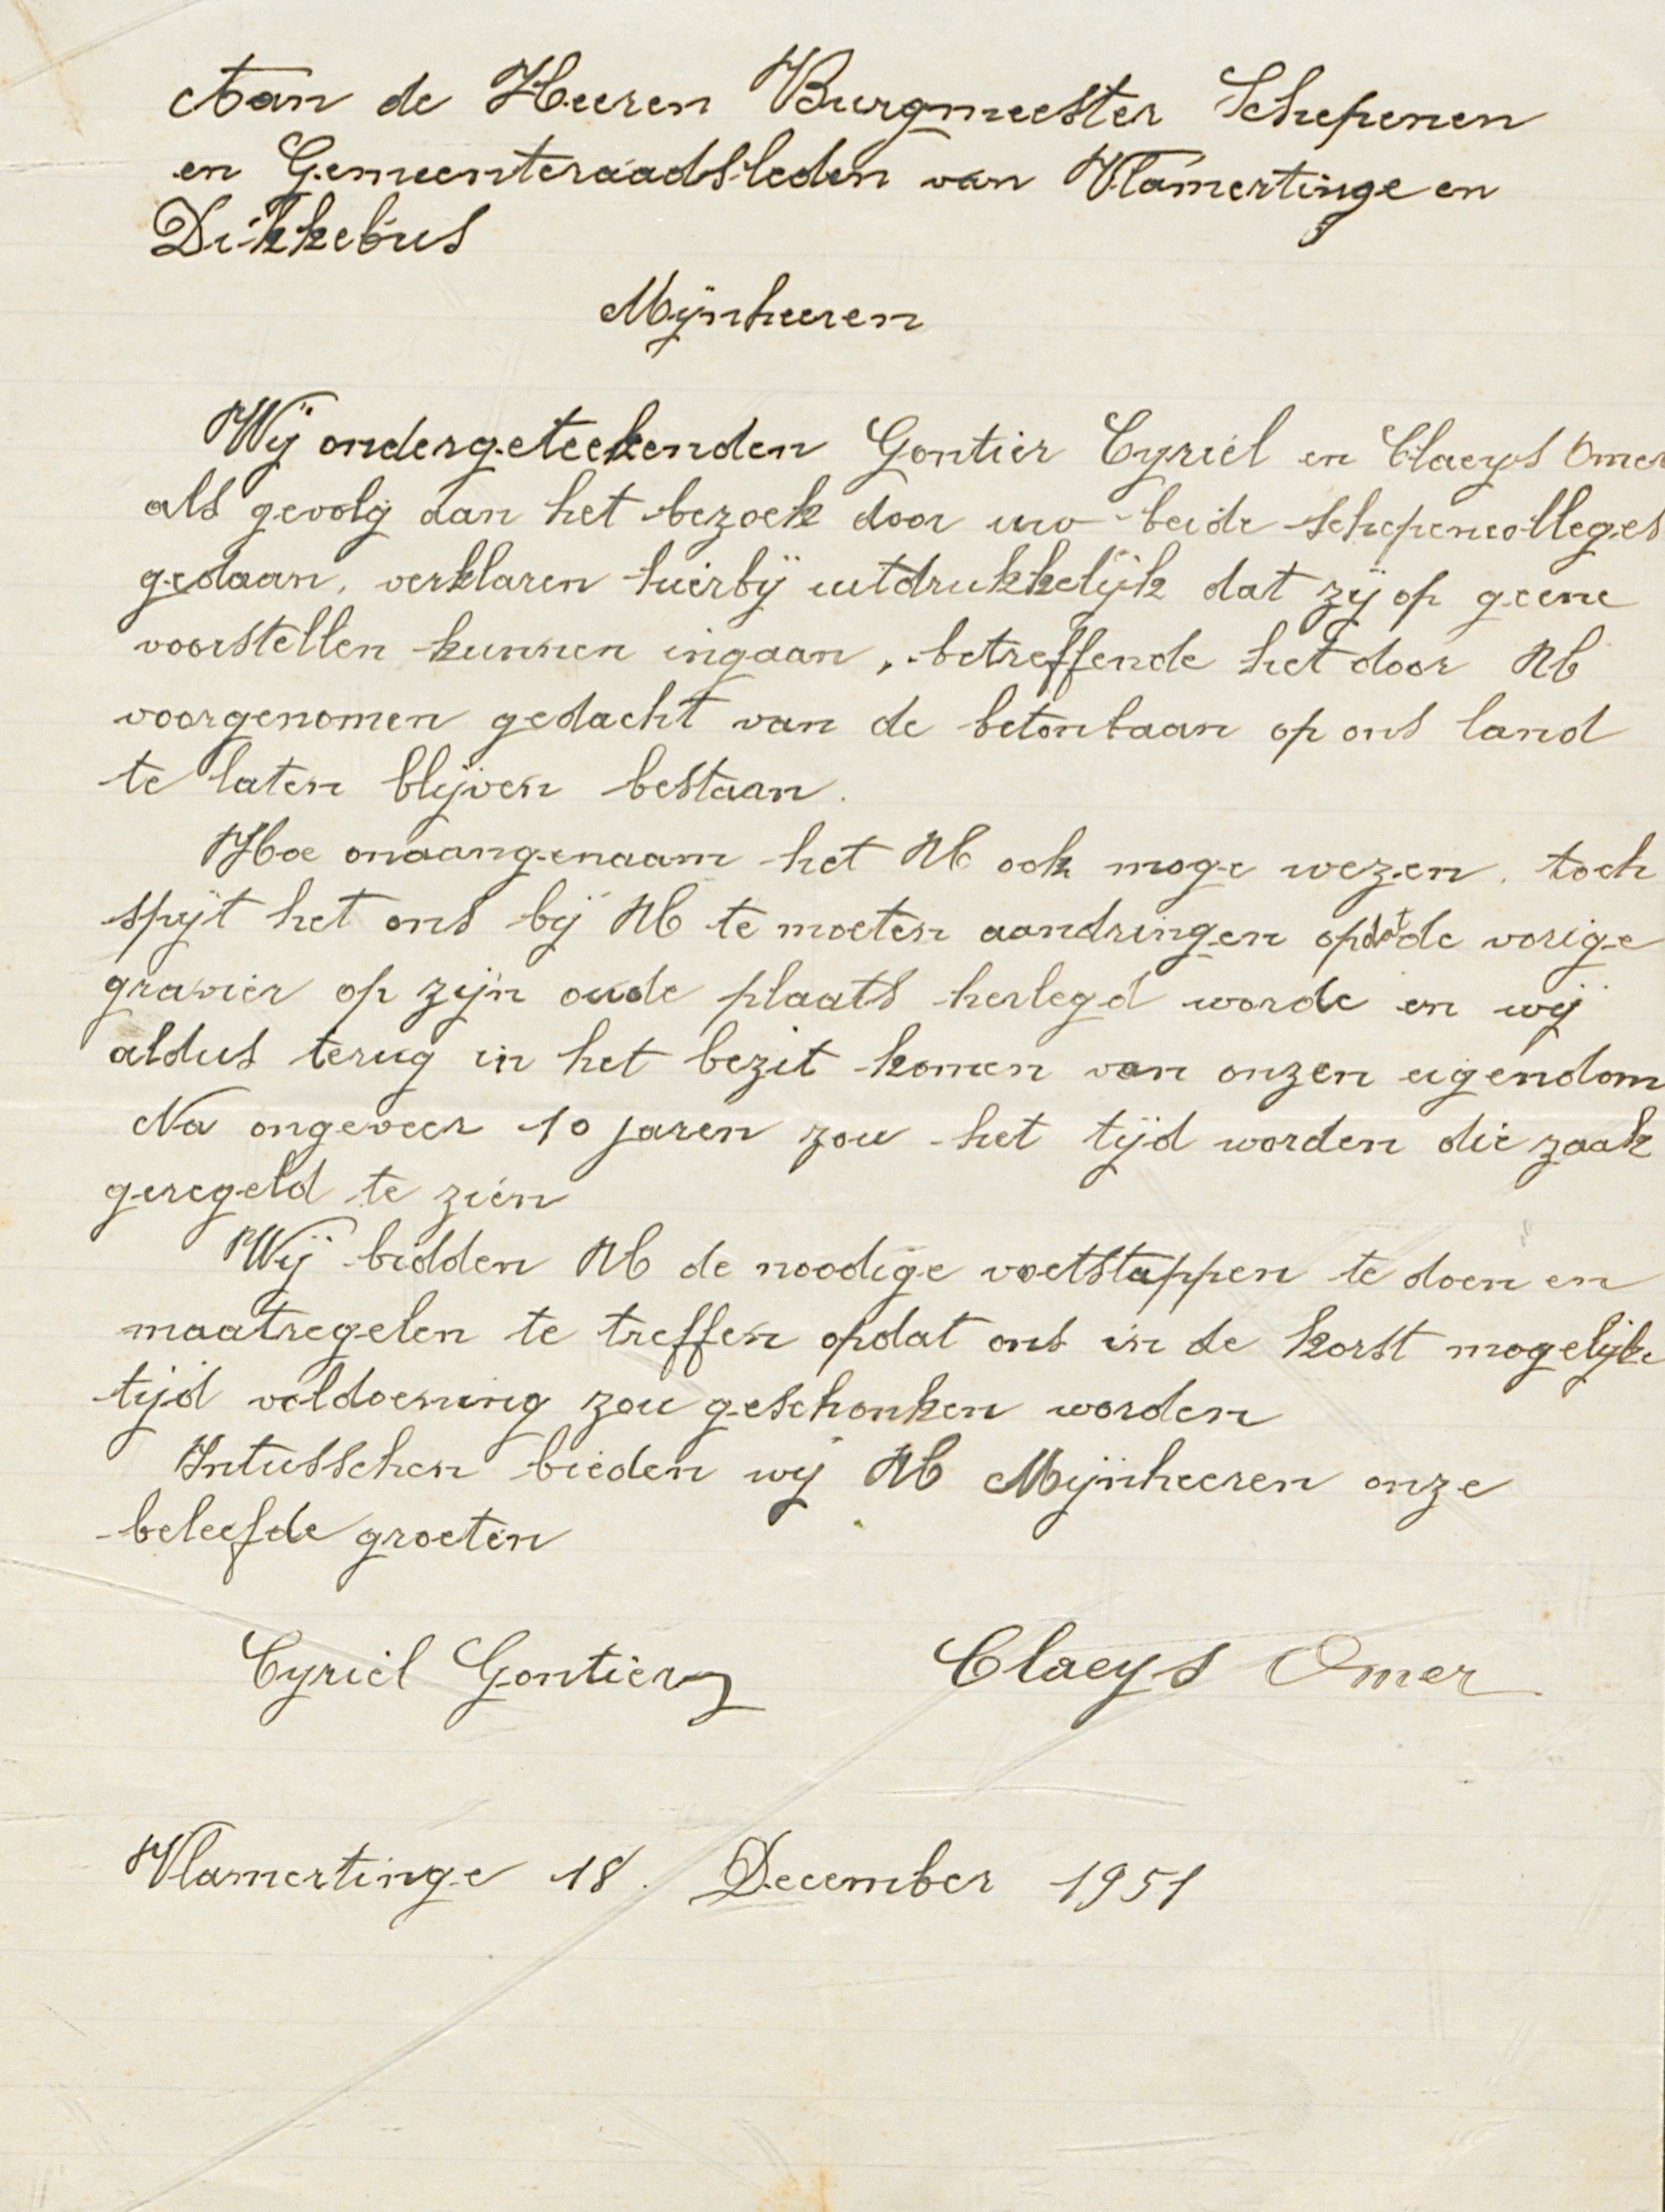 Aan de Heeren Burgmeester Schepenen
en Gemeenteraadsleden van Vlamertinge en
Dikkebus
Mijnheeren
Wij ondergeteekenden Gontier Cyriel en Claeys Omer
als gevolg aan het bezoek door uw beide schepencolleges
gedaan, verklaren hierbij uitdrukkelijk dat zij op geene
voorstellen kunnen ingaan, betreffende het door U
voorgenomen gedacht van de betonbaan op ons land
te laten blijven bestaan.
Hoe onaangenaam het U ook moge wezen, toch
spijt het ons bij U te moeten aandringen opdat de vorige
gravier op zijn oude plaats herlegd worde en wij
aldus terug in het bezit komen van onzen eigendom
Na ongeveer 10 jaren zou het tijd worden die zaak
geregeld te zien
Wij bidden U de noodige voetstappen te doen en
maatregelen te treffen opdat ons in de korst mogelijke
tijd voldoening zou geschonken worden
Intusschen bieden wij U Mijnheeren onze
beleefde groeten
Cyriel Gontier Claeys Omer
Vlamertinge 18. December 1951